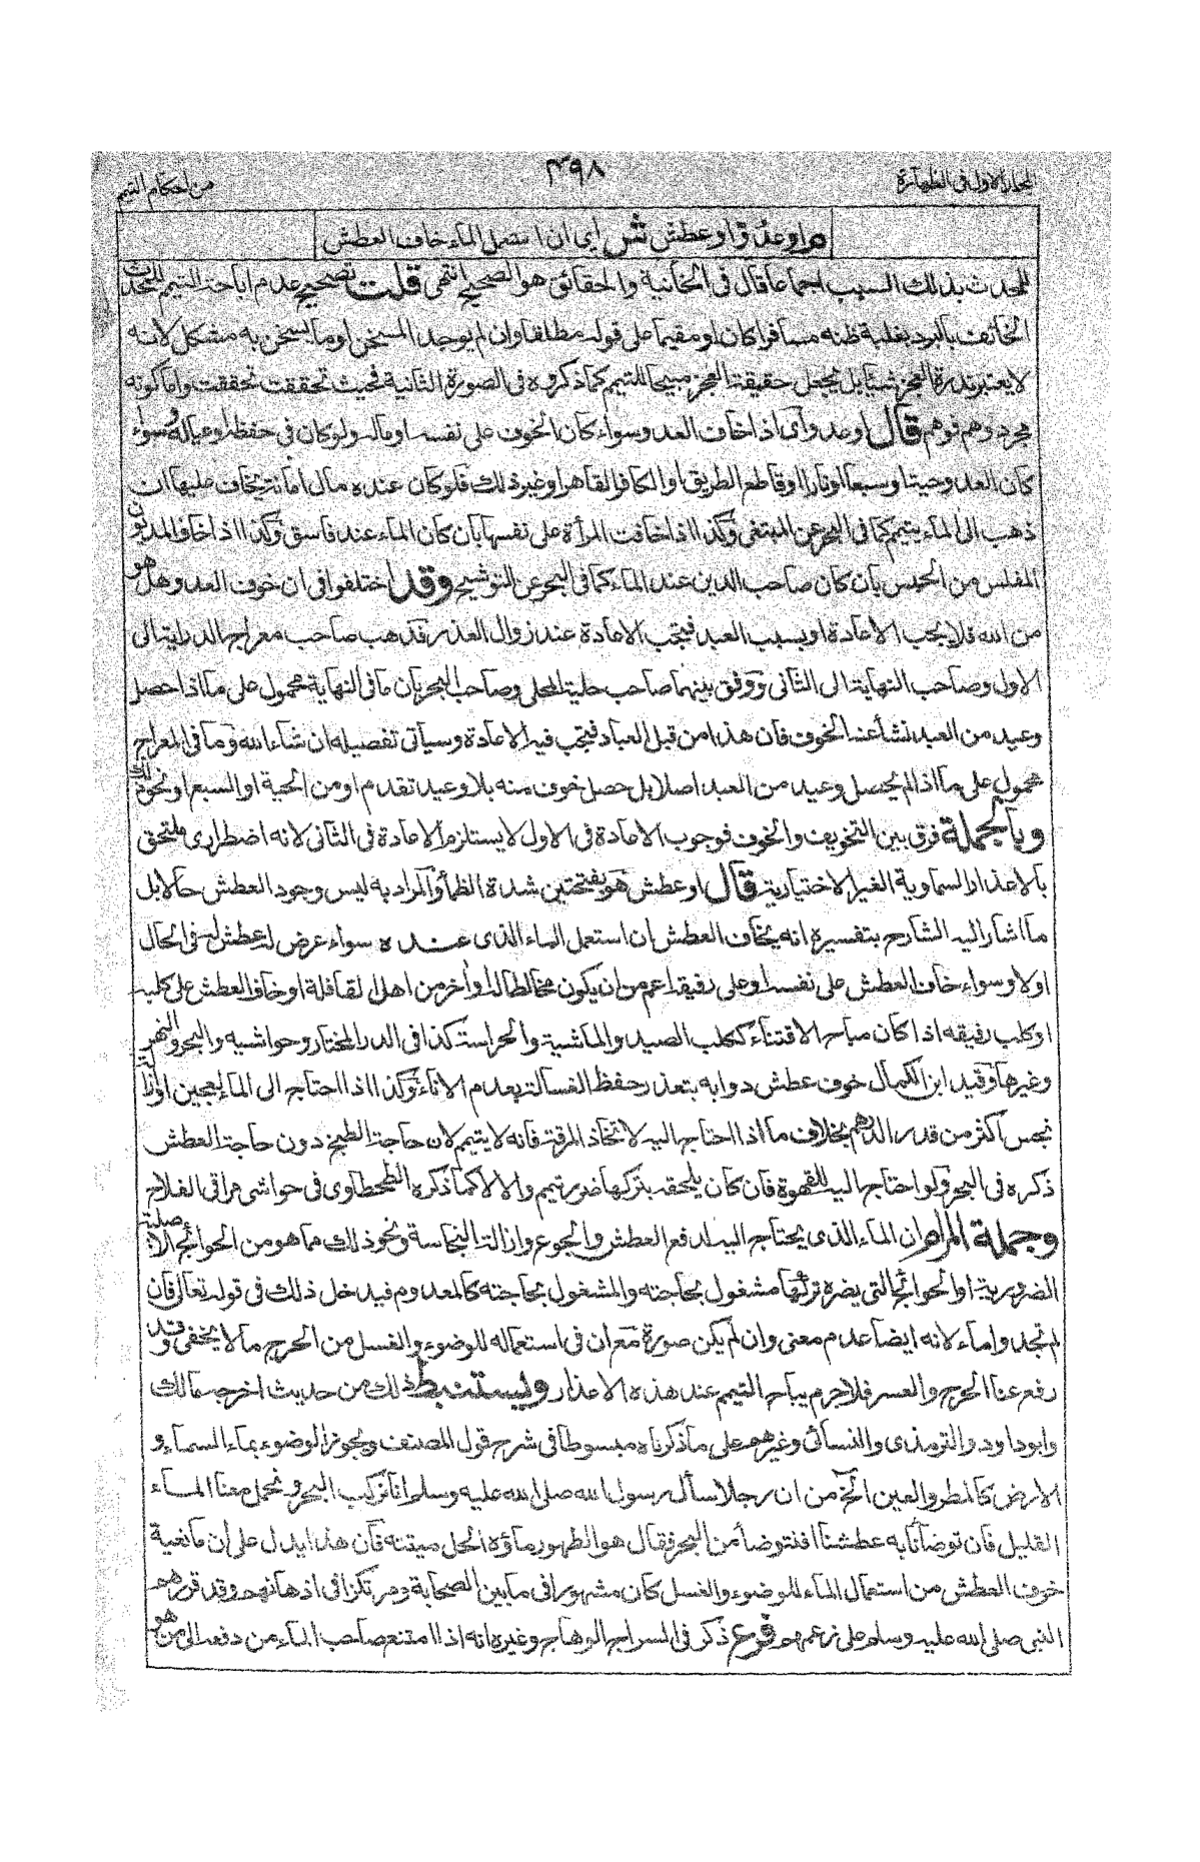 المجلد الاول فى الطهارة
٤٩٨
من احكام التيمم
م او عدو او عطش ش اى ان استعمل الماء خاف العطش
للمحدث بذلك السبب اجماعا قال فى الخانية والحقائق هو الصحيح انتهى قلت تصحيح عدم اباحة التيمم للمحدث
الخائف بالبرد بغلبة ظنه مسافرا كان او مقيما على قوله مطلقا وان لم يوجد المسخن او ما يسخن به مشكل لانه
لا يعتبر ندرة العجز شيئا بل يجعل حقيقة العجز مبيحا للتيمم كما ذكروه فى الصورة الثانية فحيث تحققت تحققت واما كونه
مجرد وهم فوهم قال او عدو اى اذا خاف العدو سواء كان الخوف على نفسه او ماله ولو كان فى حفظه او عياله وسواء
كان العدو حيتا وسبعا او نارا او قاطع الطريق او الكافر القاهر او غير ذلك فلو كان عنده مال امانة يخاف عليها ان
ذهب الى الماء يتيمم كما فى البحر عن المبتغى وكذا اذا خافت المرأة على نفسها بان كان الماء عند فاسق وكذا اذا خاف المديون
المفلس من الحبس بان كان صاحب الدين عند الماء كما فى البحر عن التوشيح وقد اختلفوا فى ان خوف العدو هل هو
من الله فلا يجب الاعادة او بسبب العبد فيجب الاعادة عند زوال العذر فذهب صاحب معراج الدراية الى
الاول وصاحب النهاية الى الثانى ووفق بينهما صاحب حلية المحلى وصاحب البحر بان ما فى النهاية محمول على ما اذا حصل
وعيد من العبد نشأ عنه الخوف فان هذا من قبل العباد فيجب فيه الاعادة وسياتى تفصيله ان شاء الله وما فى المعراج
محمول على ما اذا لم يحصل وعيد من العبد اصلا بل حصل خوف منه بلا وعيد تقدم او من الحية او السبع او نحو ذلك
وبالجملة فرق بين التخويف والخوف فوجوب الاعادة فى الاول لا يستلزم الاعادة فى الثانى لانه اضطرارى ملتحق
بالاعذار السماوية الغير الاختيارية قال او عطش هو بفتحتين شدة الظمأ والمراد به ليس وجود العطش حالا بل
ما اشار اليه الشارح بتفسيره انه يخاف العطش ان استعمل الماء الذى عنده سواء عرض له عطش فى الحال
اولا وسواء خاف العطش على نفسه او على رفيقه اعم من ان يكون مخالطا له او اخر من اهل القافلة او خاف العطش على كلبه
او كلب رفيقه اذا كان مباح الاقتناء ككلب الصيد والماشية والحراسة كذا فى الدر المختار وحواشيه والبحر والنهر
وغيرها وقيد ابن الكمال خوف عطش دوابه بتعذر حفظ الغسالة بعدم الاناء وكذا اذا احتاج الى الماء لعجين او ازالة
نجس اكثر من قدر الدرهم بخلاف ما اذا احتاج اليه لاتخاذ المرقة فانه لا يتيمم لان حاجة الطبخ دون حاجة العطش
ذكره فى البحر ولو احتاج اليه للقهوة فان كان يلحقه بتركها ضرر تيمم والا لا كما ذكره الطحطاوى فى حواشى مراقى الفلاح
وجملة المرام ان الماء الذى يحتاج اليه لدفع العطش والجوع وازالة النجاسة ونحو ذلك مما هو من الحوائج الاصلية
الضرورية او الحوائج التى يضره تركها مشغول بحاجته والمشغول بحاجته كالمعدوم فيدخل ذلك فى قوله تعالى فان
لم تجدوا ماء لانه ايضا عدم معنى وان لم يكن صورة مع ان فى استعماله للوضوء والغسل من الحرج ما لا يخفى وقد
رفع عنا الحرج والعسر فلا جرم يباح التيمم عند هذه الاعذار ويستنبط ذلك من حديث اخرجه مالك
وابو داود والترمذى والنسائى وغيرهم على ما ذكرناه مبسوطا فى شرح قول المصنف ويجوز الوضوء بماء السماء و
الارض كالمطر والعين الخ من ان رجلا سأل رسول الله صلى الله عليه وسلم انا نركب البحر ونحمل معنا الماء
القليل فان توضأنا به عطشنا افنتوضأ من البحر فقال هو الطهور ماؤه الحل ميتته فان هذا يدل على ان مانعية
خوف العطش من استعمال الماء للوضوء والغسل كان مشهورا فى ما بين الصحابة ومرتكزا فى اذهانهم وقد قررهم
النبى صلى الله عليه وسلم على زعمهم فروع ذكر فى السراج الوهاج وغيره انه اذا امتنع صاحب الماء من دفعه الى من هو